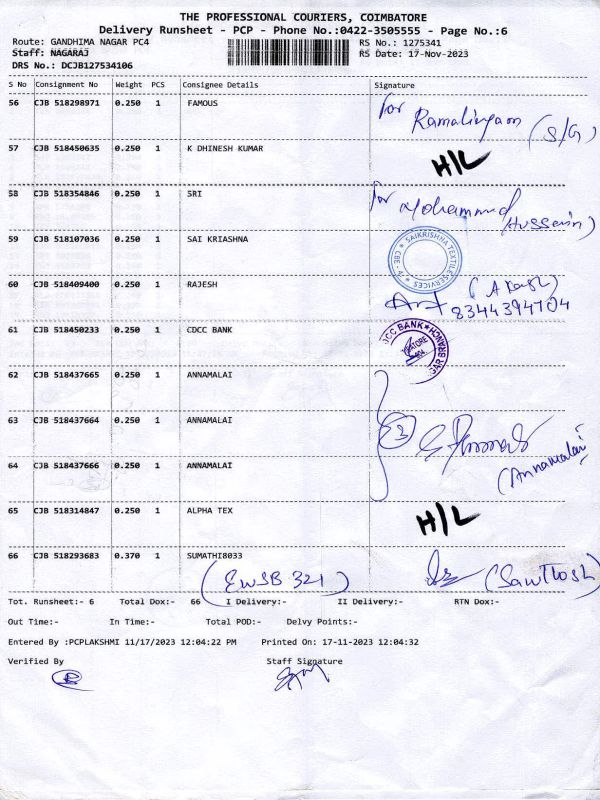 THE PROFESSIONAL COURIERS, COIMBATORE
Delivery Runsheet - PCP - Phone No.:0422-3505555 - Page No.:6
Route: GANDHIMA NAGAR PC4 RS No.: 1275341
Staff: NAGARAJ RS Date: 17-Nov-2023
DRS No.: DCJB127534106
S No Consignment No Weight PCS Consignee Details Signature
56 CJB 518298971 0.250 1 FAMOUS for Ramalingam (S/G)
57 CJB 518450635 0.250 1 K DHINESH KUMAR H/L
58 CJB 518354846 0.250 1 SRI for Mohammed (Hussain)
59 CJB 518107036 0.250 1 SAI KRIASHNA SAIKRISHNA TEXTILE SERVICES
60 CJB 518409400 0.250 1 RAJESH 8344394704
61 CJB 518450233 0.250 1 CDCC BANK DCC BANK
62 CJB 518437665 0.250 1 ANNAMALAI
63 CJB 518437664 0.250 1 ANNAMALAI 3
64 CJB 518437666 0.250 1 ANNAMALAI (Annamalai)
65 CJB 518314847 0.250 1 ALPHA TEX H/L
66 CJB 518293683 0.370 1 SUMATHI8033
(EWSB 321) (Santhosh)
Tot. Runsheet:- 6 Total Dox:- 66 I Delivery:- II Delivery:- RTN Dox:-
Out Time:- In Time:- Total POD:- Delvy Points:-
Entered By :PCPLAKSHMI 11/17/2023 12:04:22 PM Printed On: 17-11-2023 12:04:32
Verified By Staff Signature